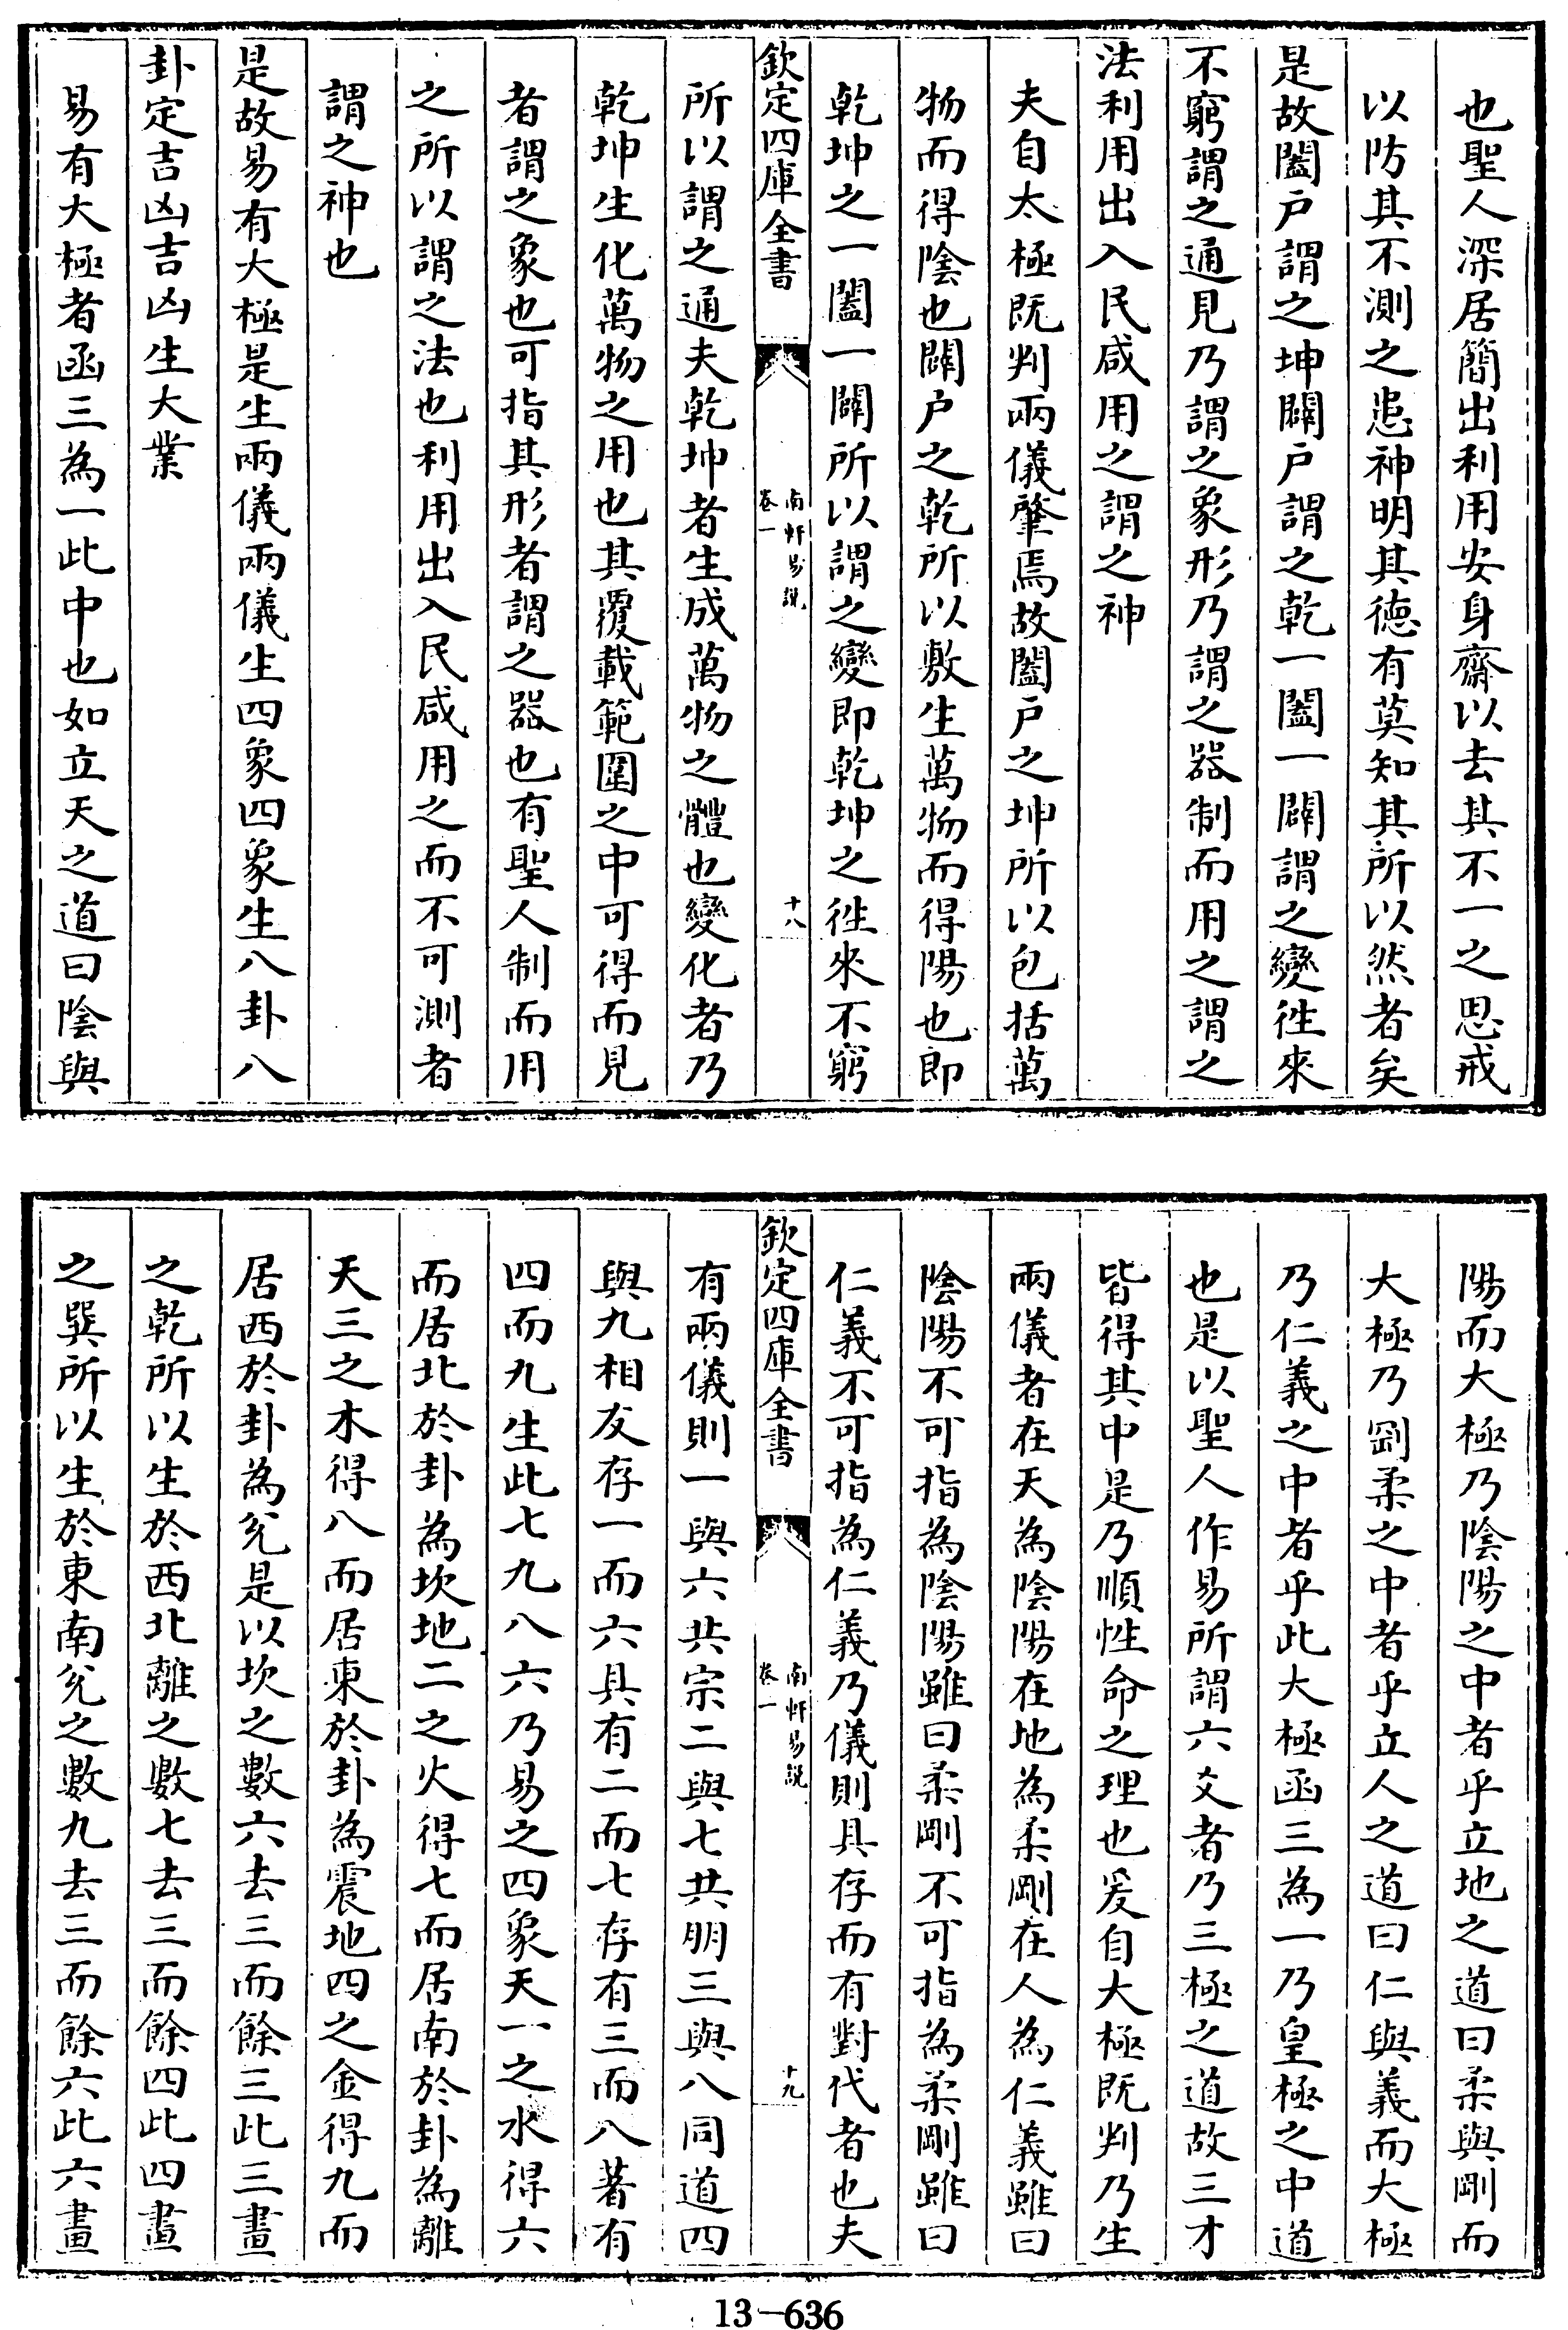 也聖人深居簡出利用安身齋以去其不一之思戒
以防其不測之患神明其徳有莫知其所以然者矣
是故闔戸謂之坤闢戸謂之乾一闔一闢謂之變徃來
不窮謂之通見乃謂之象形乃謂之器制而用之謂之
法利用出入民咸用之謂之神
夫自太極既判兩儀肇焉故闔戸之坤所以包括萬
物而得陰也闢戸之乾所以敷生萬物而得陽也即
乾坤之一闔一闢所以謂之變即乾坤之徃來不窮
欽定四庫全書
南軒易説
卷一
十八
所以謂之通夫乾坤者生成萬物之體也變化者乃
乾坤生化萬物之用也其覆載範圍之中可得而見
者謂之象也可指其形者謂之器也有聖人制而用
之所以謂之法也利用出入民咸用之而不可測者
謂之神也
是故易有大極是生兩儀兩儀生四象四象生八卦八
卦定吉凶吉凶生大業
易有大極者函三為一此中也如立天之道曰陰與
陽而大極乃陰陽之中者乎立地之道曰柔與剛而
大極乃剛柔之中者乎立人之道曰仁與義而大極
乃仁義之中者乎此大極函三為一乃皇極之中道
也是以聖人作易所謂六爻者乃三極之道故三才
皆得其中是乃順性命之理也爰自大極既判乃生
兩儀者在天為陰陽在地為柔剛在人為仁義雖曰
陰陽不可指為陰陽雖曰柔剛不可指為柔剛雖曰
仁義不可指為仁義乃儀則具存而有對代者也夫
欽定四庫全書
南軒易説
卷一
十九
有兩儀則一與六共宗二與七共朋三與八同道四
與九相友存一而六具有二而七存有三而八著有
四而九生此七九八六乃易之四象天一之水得六
而居北於卦為坎地二之火得七而居南於卦為離
天三之木得八而居東於卦為震地四之金得九而
居西於卦為兊是以坎之數六去三而餘三此三畫
之乾所以生於西北離之數七去三而餘四此四畫
之巽所以生於東南兊之數九去三而餘六此六畫
13-636